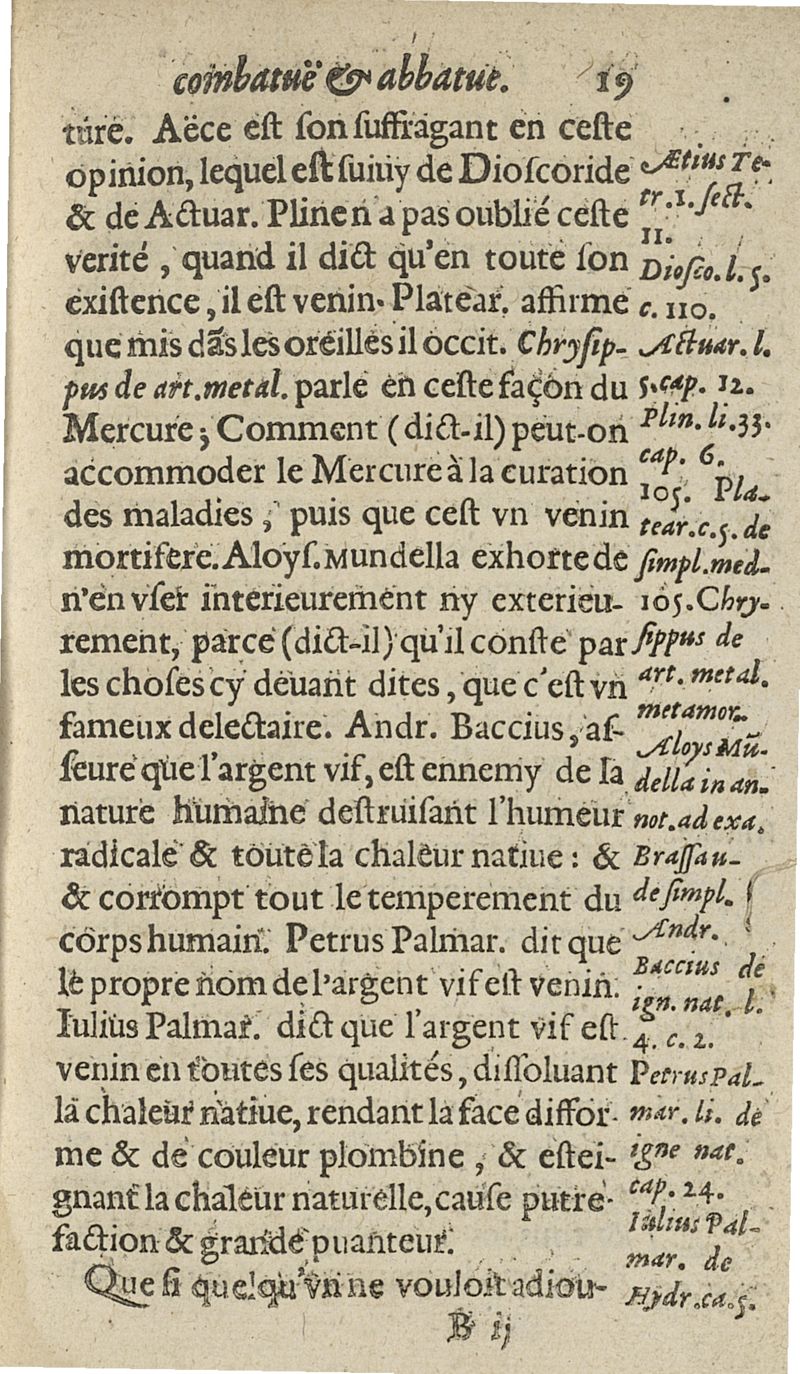 combatuë & abbatue. 19
ture. Aëce est son suffragant en ceste
opinion, lequel est suiuy de Dioscoride
& de Actuar. Pline n'a pas oublié ceste
verité, quand il dict qu'en toute son
existence, il est venin. Platear. affirme
que mis dãs les oreilles il occit. Chrysip-
pus de art. metal. parle en ceste façon du
Mercure; Comment (dict-il) peut-on
accommoder le Mercure à la curation
des maladies, puis que cest vn venin
mortifere. Aloys. Mundella exhorte de
n'en vser interieurement ny exterieu-
rement, parce (dict-il) qu'il conste par
les choses cy deuant dites, que c'est vn
fameux delectaire. Andr. Baccius, as-
seure que l'argent vif, est ennemy de la
nature humaine destruisant l'humeur
radicale & toute la chaleur natiue: &
& corrompt tout le temperement du
corps humain. Petrus Palmar. dit que
le propre nom de l'argent vif est venin.
Iulius Palmar. dict que l'argent vif est
venin en toutes ses qualités, dissoluant
la chaleur natiue, rendant la face diffor-
me & de couleur plombine, & estei-
gnant la chaleur naturelle, cause putre-
faction & grande puanteur.
Que si quelqu'vn ne vouloit adiou-
B ij
Ætius Te-
tr. 1. sect.
11.
Diosco. l. 5.
c. 110.
Actuar. l.
5. cap. 12.
Plin. li. 33.
cap. 6.
105. Pla-
tear. c. 5. de
simpl. med-
105. Chry-
sippus de
art. metal.
metamor.
Aloys Mũ-
della in an-
not. ad exa.
Brassau-
de simpl.
Andr.
Baccius de
ign. nat. l.
4. c. 2.
Petrus Pal-
mar. li. de
igne nat.
cap. 24.
Iulius Pal-
mar. de
Hydr. ca. 5.